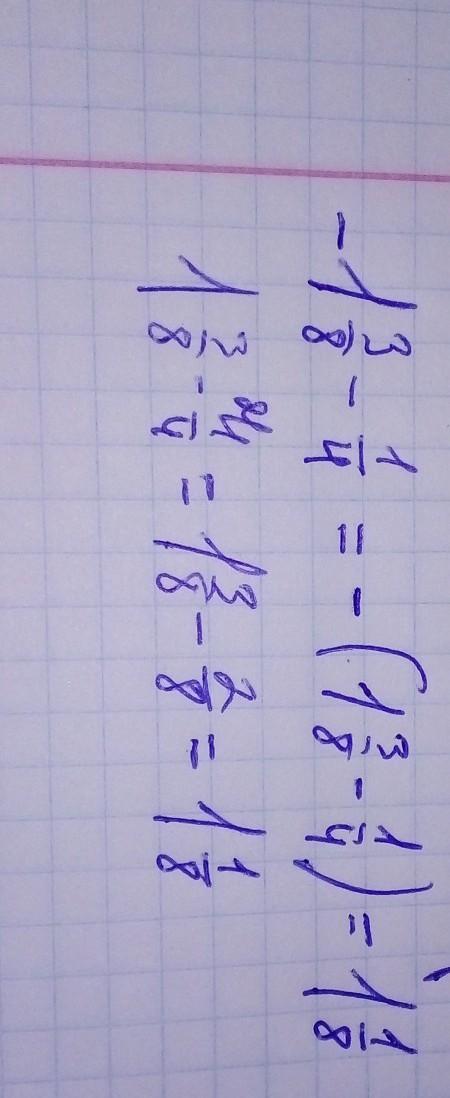 -1 3/8 - 1/4 = -(1 3/8 - 1/4) = 1 1/8
1 3/8 - 1/4 = 1 3/8 - 2/8 = 1 1/8